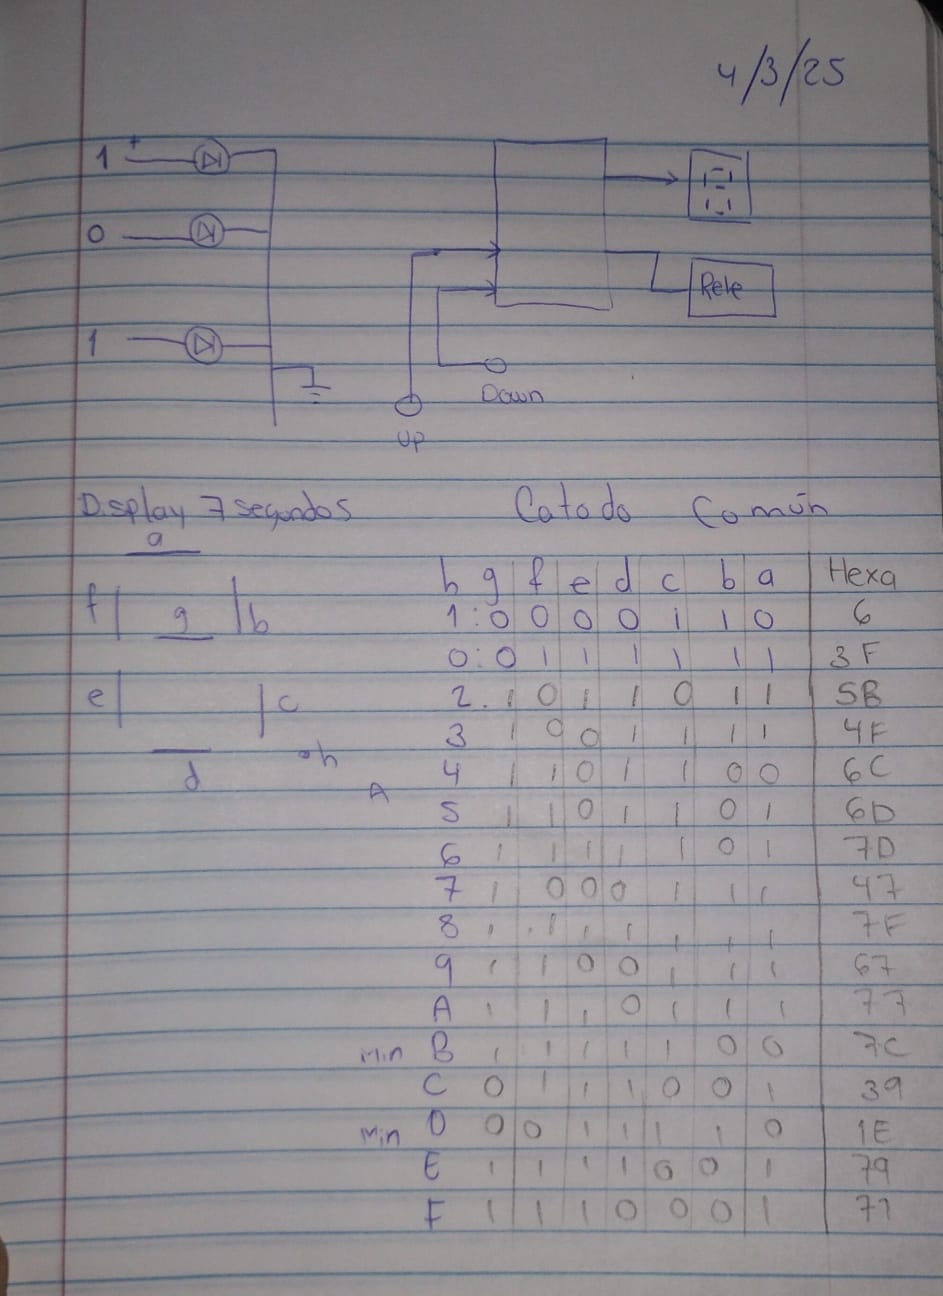 4/3/25
1 +
0
1
Rele
Down
UP
Display 7 segundos Catodo Común
a
f g b
e c
d h
A
h g f e d c b a Hexa
1: 0 0 0 0 1 1 0 6
0: 0 1 1 1 1 1 1 3F
2. 1 0 1 1 0 1 1 5B
3 1 0 0 1 1 1 1 4F
4 1 1 0 1 1 0 0 6C
5 1 1 0 1 1 0 1 6D
6 1 1 1 1 1 0 1 7D
7 1 0 0 0 1 1 1 47
8 1 1 1 1 1 1 1 7F
9 1 1 0 0 1 1 1 67
A 1 1 1 0 1 1 1 77
Min B 1 1 1 1 1 0 0 7C
C 0 1 1 1 0 0 1 39
Min D 0 0 1 1 1 1 0 1E
E 1 1 1 1 0 0 1 79
F 1 1 1 0 0 0 1 71